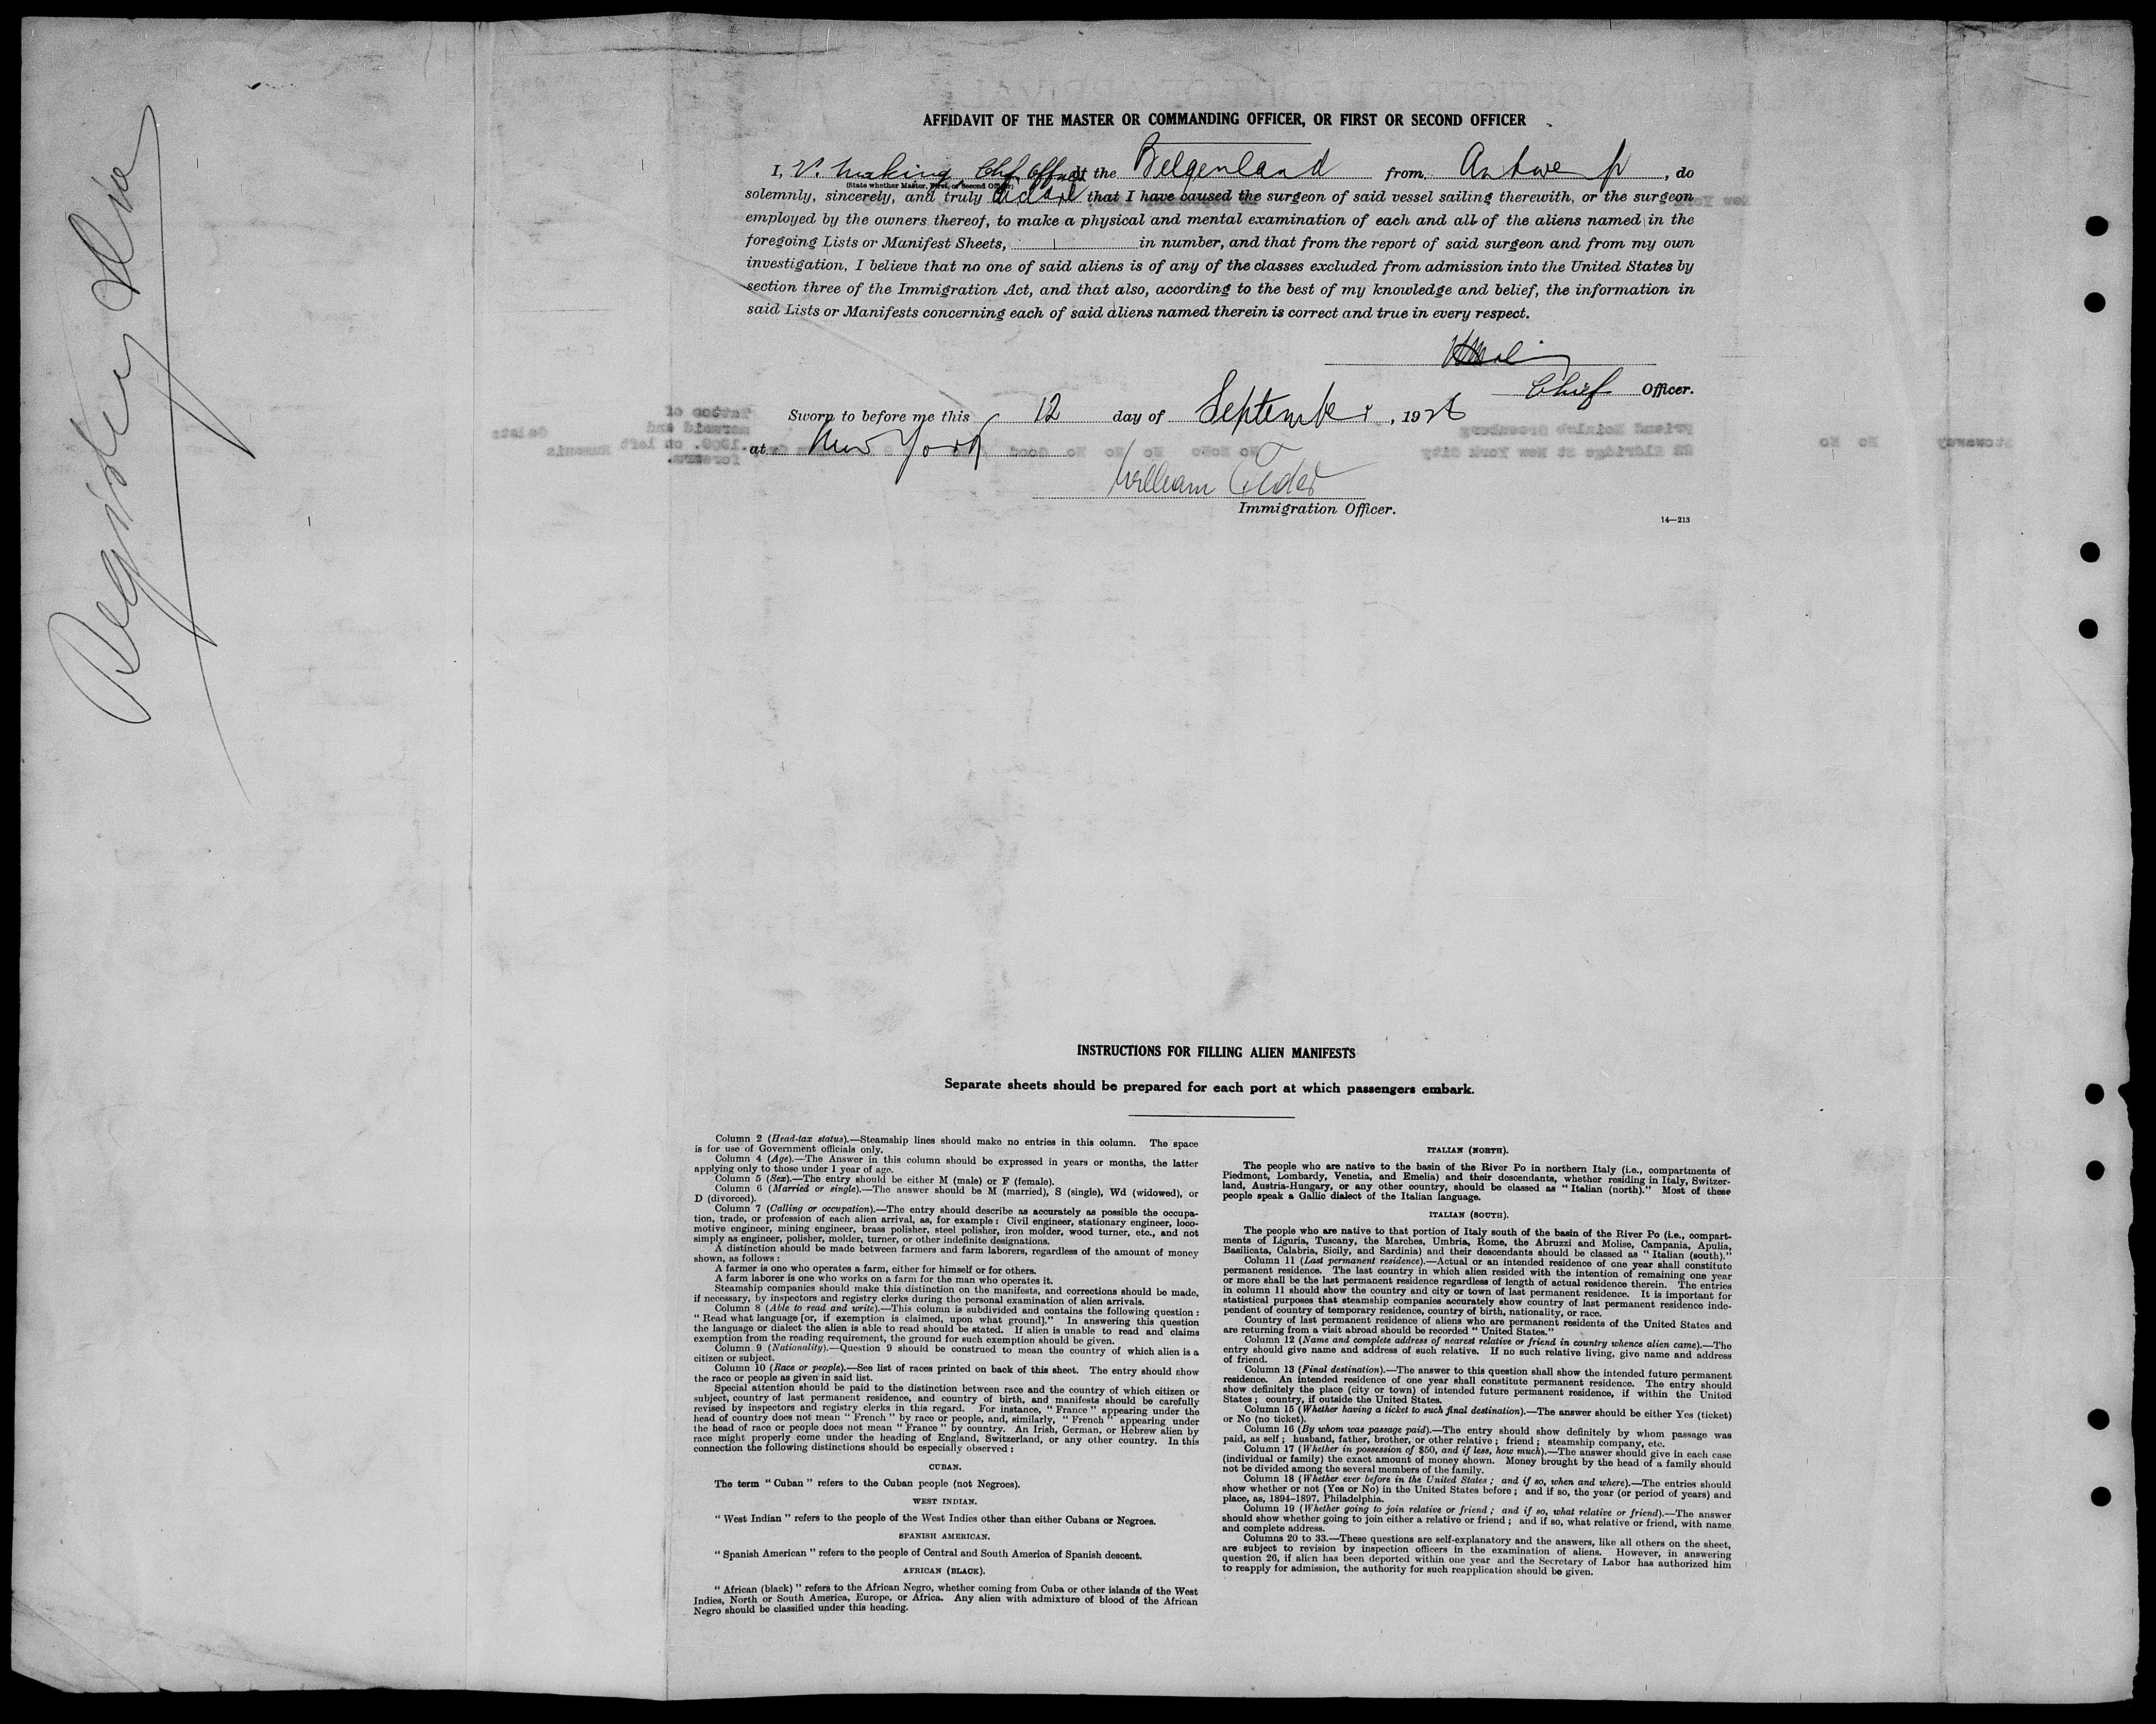 AFFIDAVIT OF THE MASTER OR COMMANDING OFFICER, OR FIRST OR SECOND OFFICER
I, V. Chf. Officer of the Belgenland from Antwerp, do
(State whether Master, First, or Second Officer)
solemnly, sincerely, and truly that I have caused the surgeon of said vessel sailing therewith, or the surgeon
employed by the owners thereof, to make a physical and mental examination of each and all of the aliens named in the
foregoing Lists or Manifest Sheets, 1 in number, and that from the report of said surgeon and from my own
investigation, I believe that no one of said aliens is of any of the classes excluded from admission into the United States by
section three of the Immigration Act, and that also, according to the best of my knowledge and belief, the information in
said Lists or Manifests concerning each of said aliens named therein is correct and true in every respect.
Chief Officer.
Sworn to before me this 12 day of September, 1926
at New York
William
Immigration Officer.
14—213
INSTRUCTIONS FOR FILLING ALIEN MANIFESTS
Separate sheets should be prepared for each port at which passengers embark.
Column 2 (Head-tax status).—Steamship lines should make no entries in this column. The space
is for use of Government officials only.
Column 4 (Age).—The Answer in this column should be expressed in years or months, the latter
applying only to those under 1 year of age.
Column 5 (Sex).—The entry should be either M (male) or F (female).
Column 6 (Married or single).—The answer should be M (married), S (single), Wd (widowed), or
D (divorced).
Column 7 (Calling or occupation).—The entry should describe as accurately as possible the occupa-
tion, trade, or profession of each alien arrival, as, for example: Civil engineer, stationary engineer, loco-
motive engineer, mining engineer, brass polisher, steel polisher, iron molder, wood turner, etc., and not
simply as engineer, polisher, molder, turner, or other indefinite designations.
A distinction should be made between farmers and farm laborers, regardless of the amount of money
shown, as follows:
A farmer is one who operates a farm, either for himself or for others.
A farm laborer is one who works on a farm for the man who operates it.
Steamship companies should make this distinction on the manifests, and corrections should be made,
if necessary, by inspectors and registry clerks during the personal examination of alien arrivals.
Column 8 (Able to read and write).—This column is subdivided and contains the following question:
"Read what language [or, if exemption is claimed, upon what ground]." In answering this question
the language or dialect the alien is able to read should be stated. If alien is unable to read and claims
exemption from the reading requirement, the ground for such exemption should be given.
Column 9 (Nationality).—Question 9 should be construed to mean the country of which alien is a
citizen or subject.
Column 10 (Race or people).—See list of races printed on back of this sheet. The entry should show
the race or people as given in said list.
Special attention should be paid to the distinction between race and the country of which citizen or
subject, country of last permanent residence, and country of birth, and manifests should be carefully
revised by inspectors and registry clerks in this regard. For instance, "France" appearing under the
head of country does not mean "French" by race or people, and, similarly, "French" appearing under
the head of race or people does not mean "France" by country. An Irish, German, or Hebrew alien by
race might properly come under the heading of England, Switzerland, or any other country. In this
connection the following distinctions should be especially observed:
CUBAN.
The term "Cuban" refers to the Cuban people (not Negroes).
WEST INDIAN.
"West Indian" refers to the people of the West Indies other than either Cubans or Negroes.
SPANISH AMERICAN.
"Spanish American" refers to the people of Central and South America of Spanish descent.
AFRICAN (BLACK).
"African (black)" refers to the African Negro, whether coming from Cuba or other islands of the West
Indies, North or South America, Europe, or Africa. Any alien with admixture of blood of the African
Negro should be classified under this heading.
ITALIAN (NORTH).
The people who are native to the basin of the River Po in northern Italy (i.e., compartments of
Piedmont, Lombardy, Venetia, and Emelia) and their descendants, whether residing in Italy, Switzer-
land, Austria-Hungary, or any other country, should be classed as "Italian (north)." Most of these
people speak a Gallic dialect of the Italian language.
ITALIAN (SOUTH).
The people who are native to that portion of Italy south of the basin of the River Po (i.e., compart-
ments of Liguria, Tuscany, the Marches, Umbria, Rome, the Abruzzi and Molise, Campania, Apulia,
Basilicata, Calabria, Sicily, and Sardinia) and their descendants should be classed as "Italian (south)."
Column 11 (Last permanent residence).—Actual or an intended residence of one year shall constitute
permanent residence. The last country in which alien resided with the intention of remaining one year
or more shall be the last permanent residence regardless of length of actual residence therein. The entries
in column 11 should show the country and city or town of last permanent residence. It is important for
statistical purposes that steamship companies accurately show country of last permanent residence inde-
pendent of country of temporary residence, country of birth, nationality, or race.
Country of last permanent residence of aliens who are permanent residents of the United States and
are returning from a visit abroad should be recorded "United States."
Column 12 (Name and complete address of nearest relative or friend in country whence alien came).—The
entry should give name and address of such relative. If no such relative living, give name and address
of friend.
Column 13 (Final destination).—The answer to this question shall show the intended future permanent
residence. An intended residence of one year shall constitute permanent residence. The entry should
show definitely the place (city or town) of intended future permanent residence, if within the United
States; country, if outside the United States.
Column 15 (Whether having a ticket to such final destination).—The answer should be either Yes (ticket)
or No (no ticket).
Column 16 (By whom was passage paid).—The entry should show definitely by whom passage was
paid, as self; husband, father, brother, or other relative; friend; steamship company, etc.
Column 17 (Whether in possession of $50, and if less, how much).—The answer should give in each case
(individual or family) the exact amount of money shown. Money brought by the head of a family should
not be divided among the several members of the family.
Column 18 (Whether ever before in the United States; and if so, when and where).—The entries should
show whether or not (Yes or No) in the United States before; and if so, the year (or period of years) and
place, as, 1894-1897, Philadelphia.
Column 19 (Whether going to join relative or friend; and if so, what relative or friend).—The answer
should show whether going to join either a relative or friend; and if so, what relative or friend, with name
and complete address.
Columns 20 to 33.—These questions are self-explanatory and the answers, like all others on the sheet,
are subject to revision by inspection officers in the examination of aliens. However, in answering
question 26, if alien has been deported within one year and the Secretary of Labor has authorized him
to reapply for admission, the authority for such reapplication should be given.
Registry